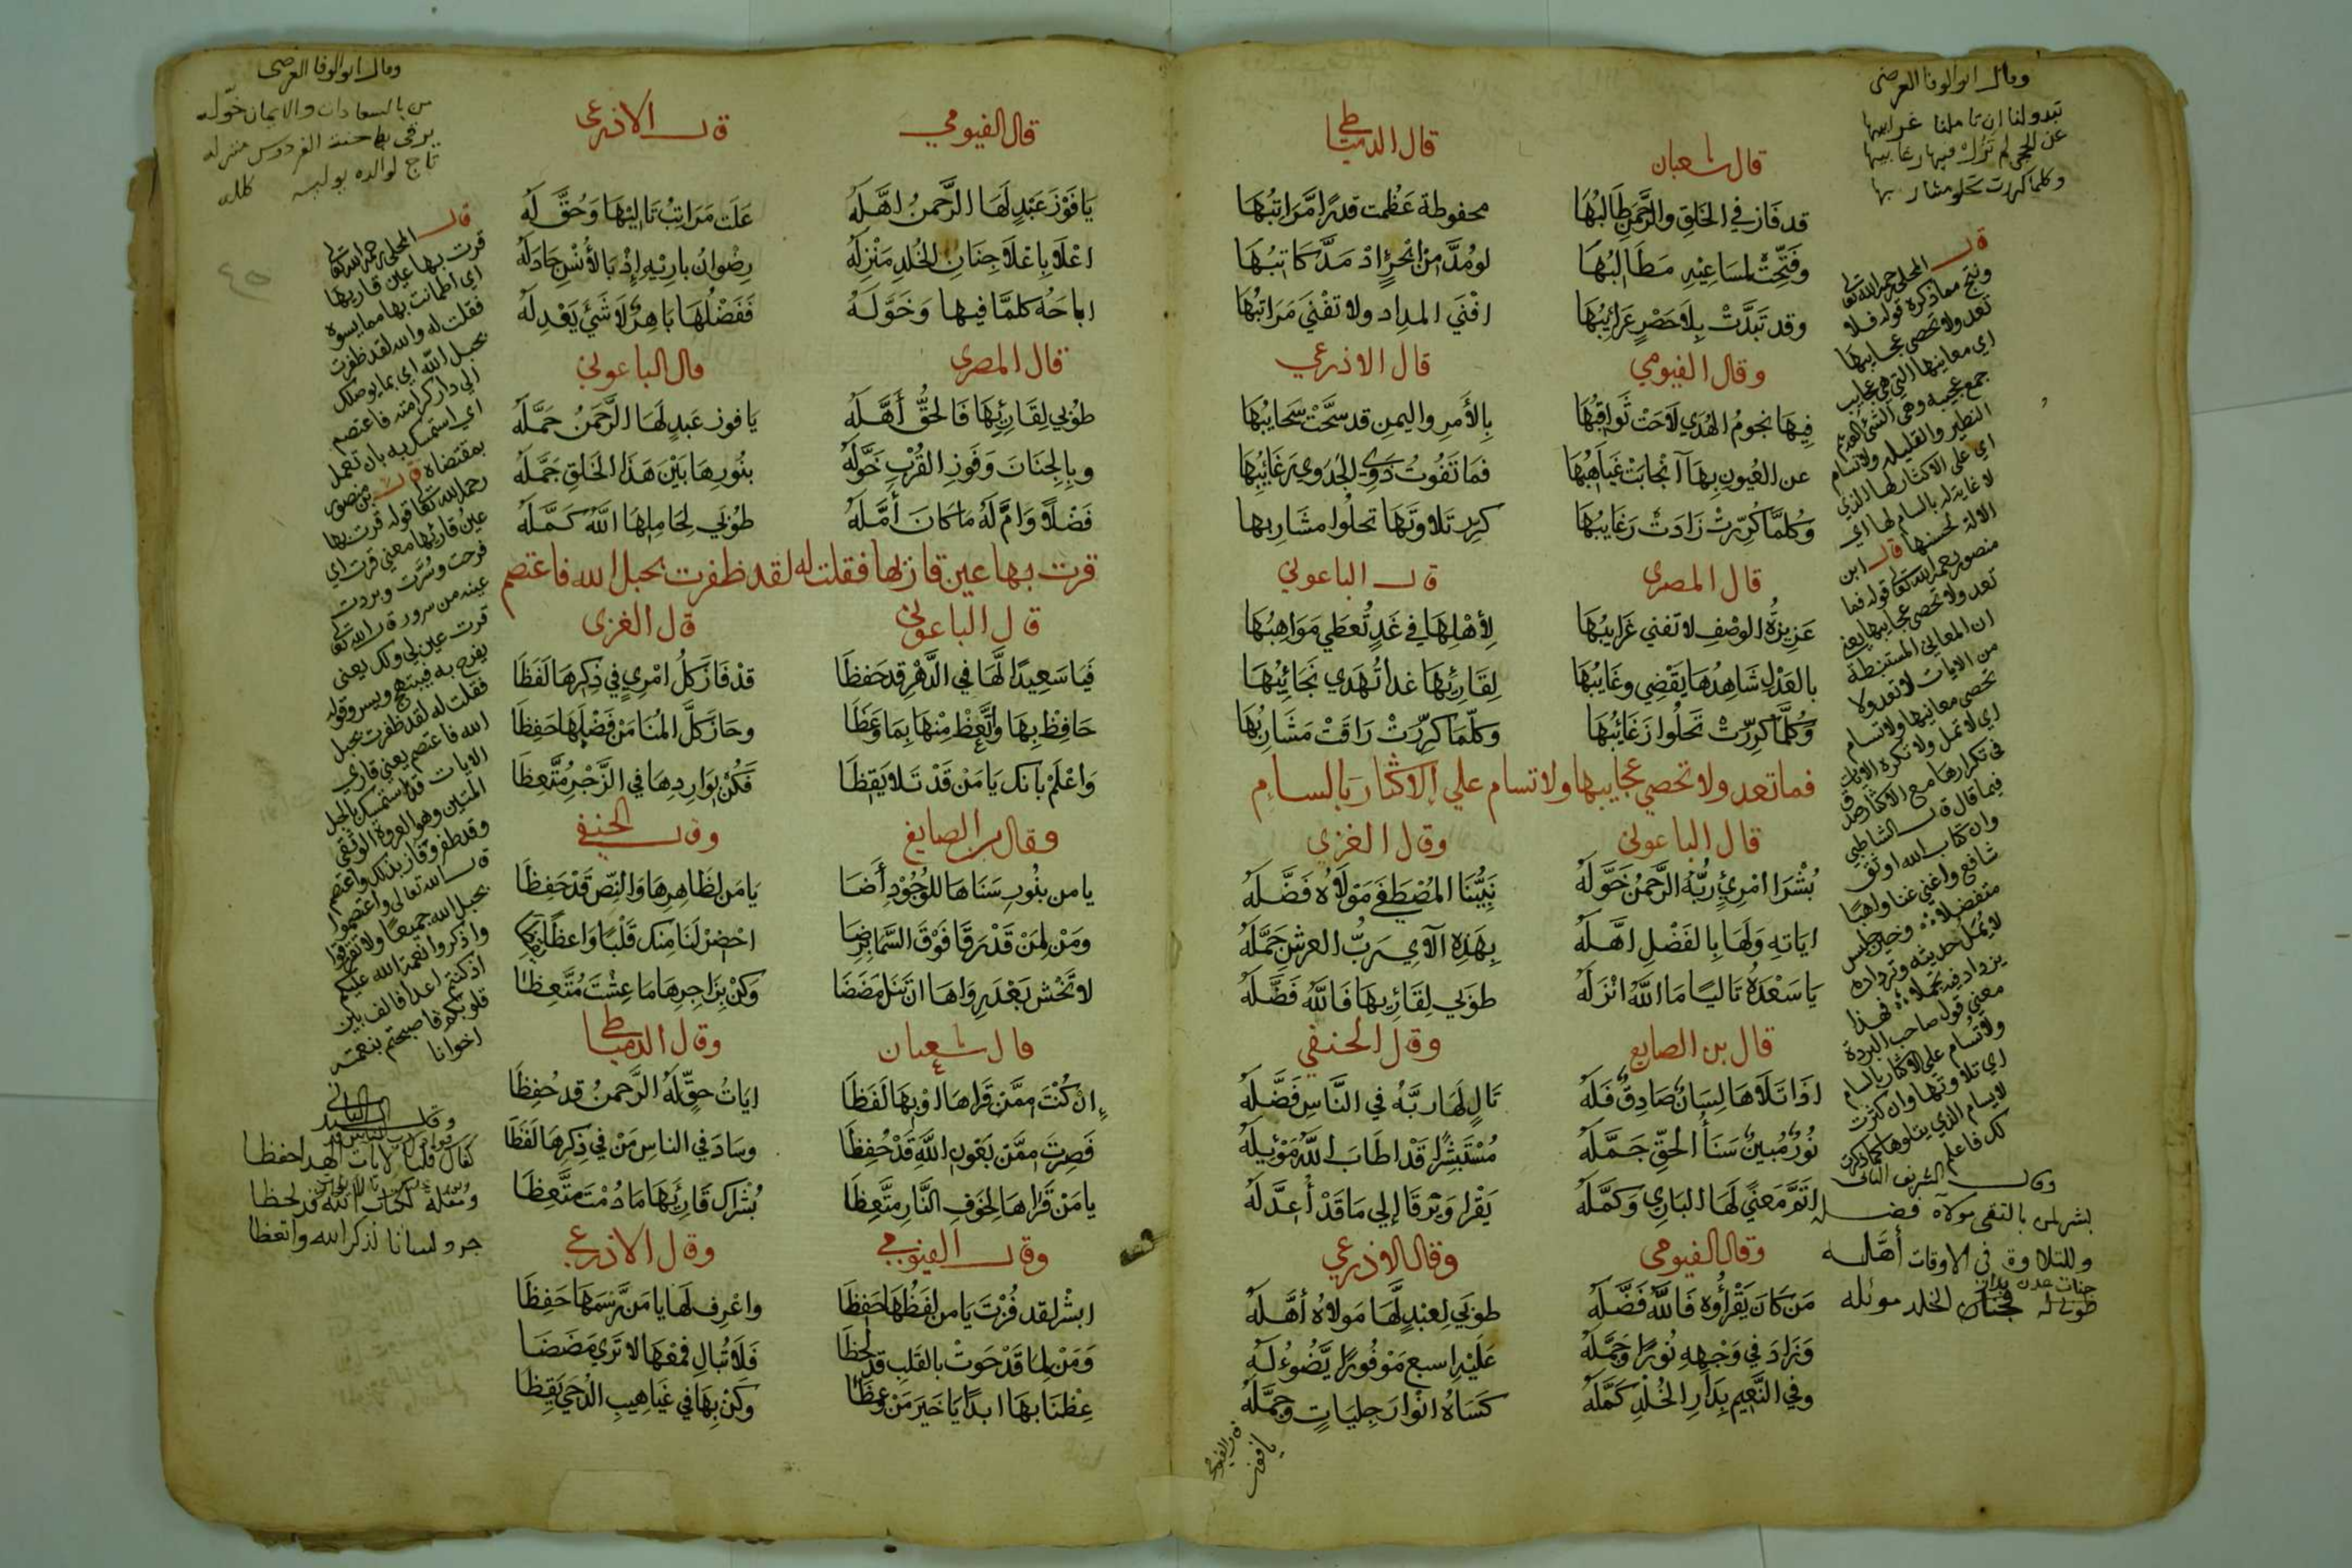 قال شعبان
قد فَازَ في الخَلقِ والرَّحمَنِ طَالبُهَا
وفُتِّحِتْ لمسَاعِيْهِ مَطَالبُهَا
وقد تَبَدَّتْ بِلاَ حَصْرٍ غَرَايبُهَا
قال الدمياطي
محفوظة عَظُمت قدرًا مَرَاتبُهَا
لو مُدَّ مِنْ ابْحُرٍ اذ مَدَّ كَاتبُهَا
افْنَي المداد ولا تفْنَي مَرَاتبُهَا
وقال الفيومي
فِيهَا نجومُ الهُدَي لاَحَتْ ثَوَاقبُهَا
عن العُيونِ بِهَا آنْجابَتْ غَيَاهِبُهَا
وَكُلمَّا كُرِّرتْ زَادَتْ رَغَايبُهَا
قال الاذرعي
بِالأَمرِ واليمنِ قد سَحَّتْ سَحَايبُهَا
فمَا تَفُوتُ ذَوِي الجَدوي رَغَايبُهَا
كرِّر تَلاوتَهَا تحلُوا مشَاربها
قال المصري
عَزِيزةُ الوصْفِ لا تفني غَرَايبُهَا
بالعَدْلِ شَاهِدُهَا يَقْضِي وغَايبُهَا
وَكُلَّمَا كُرِّرتْ تَحلُوا رَغَائبُهَا
قال الباعوني
لِأَهْلِهَا في غَدٍ تُعطَي مَوَاهِبُهَا
لِقَارِئِهَا غدا تُهدَي نَجَائِبُهَا
وَكلّمَا كُرِّرَتْ رَاقَتْ مَشَاربُهَا
فما تعد ولا تحصي عجايبها ولا تسام علي الاكثار بالسام
قال الباعوني
بُشْرَا امْرِئٍ رَبُّهُ الرَّحمنُ خَوَّلَهُ
ايَاتهِ وَلهَا بِالفَضْلِ اهَّلَهُ
يَا سَعْدَهُ تَاليًا مَا اللَّهُ انْزَلَهُ
وقال الغزي
نَبِيُّنَا المُصْطَفَي مَوْلاَهُ فَضَّلَهُ
بِهَذِهِ الآي رَبُّ العرشِ جَمَّلَهُ
طوَبي لِقَارِئهَا فَاللّهُ فَضَّلَهُ
قال بن الصايغ
اذَا تَلاَهَا لِسَانٌ صَادِقٌ فَلَهُ
نُورٌ مُبينٌ سَنَأ الحَقِّ جَمَّلَهُ
اتَمَّ مَعنًي لَهَا البَارِي وَكَمَّلَهُ
وقال الحنفي
تَالٍ لَهَا رَبُّهُ في النَّاسِ فَضَّلَهُ
مُسْتَبْشِرًا قَدْ اطَابَ اللَّهُ مَوْئِلَهُ
يَقْرا وَيرْقَا إلي مَا قَدْ أُعِدَّ لَهُ
وقال الفيومي
مَن كَانَ يَقْرأُوهُ فَاللَّهُ فَضَّلَهُ
وَزَادَ في وَجْهِهِ نُورًا وَجَمَّلَهُ
وفي النَّعيم بِدَارِ الخُلْدِ كَمَّلَهُ
وقال الاذرعي
طوَبي لِعبْدٍ لَّهَا مَولاهُ أهَّلَهُ
عَلَيْهِ اسبع مَوْفُورًا يَّضُوءُ لَهُ
كَسَاهُ انْوَارَ جلِيَاتٍ وجمَّلَهُ
وقال ابو الوفا العرضي
تبدو لنا ان تاملنا غرايبها
عن الحجي لم تزل فيها رغايبها
وكلما كررت تحلو مشاربها
قال المحلي رحمه الله تعالي
ونتج مما ذكره قوله فلا
تعد ولا تحصي عجايبها
اي معانيها التي هي عجايب
جمع عجيبه وهي الشئ العديم
النظير والقليله ولا تسام
اي علي الاكثار لها الذي
لا غاية له بالسام لها اي
الالة لحسنها قال ابن
منصور رحمه الله تعالي قوله فما
تعد ولا تحصي عجايبها يعني
ان المعاني المستنبطة
من الايات لا تعد ولا
تحصي معانيها ولا تسام
اي لا تمل ولا تكره الايات
في تكرارها مع الاكثار وقد صدق
فيما قال قال الشاطبي
وان كتاب الله اوثق
شافع واغني غنا واهبًا
متفضلا وخير جليس
لا يمل حديثه وترداده
يزداد فيه تجملا فهذا
معني قول صاحب البردة
ولا تسام علي الاكثار بالسام
اي تلاوتها وان كثرت
لا يسام الذي يتلوها كما ذكرت
لك فاعلم
بشر لمن بالتقي مولاه فضله
وللتلاوة في الاوقات أهَّله
جنات عدن
طوبي له فجنان الخلد موئله
قال الفيومي
يا فوز
قال الفيومي
يَا فَوْزَ عَبْدٍ لَهَا الرَّحمنُ اهَّلَهُ
اعْلاَ بِاعْلاَ جِنَانِ الخُلدِ مَنْزِلَهُ
اباحَهُ كلمَّا فيها وَخَوَّلَهُ
قال الاذرعي
عَلَت مَرَاتِبُ تَاليْهَا وَحُقَّ لَهُ
رِضْوانُ بارِيْهِ إذْ بالأُنْسِ جَادَلَهُ
فَفَضْلُهَا بَاهِرٌ لاَ شَئَ يَعْدِلَهُ
قال المصري
طوُبي لِقَارِئِهَا فَالحَقُّ أَهَّلَهُ
وبِالجِنَانَ وَفَوزِ القُرْبِ خَوَّلَهُ
فَضْلاً وَامَّ لَهُ مَا كانَ أمَّلَهُ
قال الباعوني
يَا فوز عَبدٍ لَهَا الرَّحمَنُ جَمَّلَهُ
بنُورِهَا بَيْنَ هَذَا الخَلقِ جَمَّلَهُ
طوُبَي لِحَامِلِهَا اللَّهُ كَمَّلَهُ
قرت بها عين قاريها فقلت له لقد ظفرت بحبل الله فاعتصم
قال الباعوني
فَيَا سَعِيدًا لَّهَا في الدَّهْرِ قد حَفِظَا
حَافِظْ بِهَا واتَّعِظْ مِنْهَا بِمَا وَعَظَا
وَاعْلَمْ بانك يَا مَنْ قَدْ تَلا يَقِظَا
قال الغزي
قدْ فَازَ كلُّ امْرِيٍ في ذِكرِهَا لَفَظَا
وحَازَ كلَّ المُنَا مَنْ فَضْلِهَا حَفِظَا
فَكُنْ بِوَارِدِهَا في الزَّجْرِ مُتَّعِظَا
وقال بن الصايغ
يا من بنُورِ سَنَاهَا للوُجُوْدِ أَضَا
ومَنْ لِمَنْ قَدْ رَقَا فَوْقَ السَّمَا بِرِضَا
لا تَخْش بَعْدَ رِوَاهَا ان تَنَل مَضَضَا
وقال الحنفي
يَا مَن لظَاهِرِهَا وَالنصّ قَدْ حَفِظَا
احْضِرْ لَنَا مِنك قَلْبًا وَاعظًا
وَكنْ بِزَاجِرِهَا مَا عِشْتَ مُتَّعِظَا
قال شعبان
إنْ كُنْتَ مِمَّن قَرَاهَا اوْ بِهَا لَفَظَا
فَصِرتَ مِمَّن بَعَونِ اللَّهِ قَدْ حُفِظَا
يا مَنْ قَرَاهَا لِخَوفِ النَّارِ مُتَّعِظَا
وقال الدمياطي
ايَاتُ حقٍّ لَهُ الرَّحمنُ قد حُفِظَا
وسَادَ في الناسِ مَنْ في ذِكرِهَا لَفَظَا
بُشْرَاك قَارِيَهَا مَا دُمْتَ مُتَّعِظَا
وقال الفيومي
ابشْر لقد فُزْتَ يَا من لفَظُهَا حَفِظَا
وَمَنْ لِمَا قَدْ حَوتْ بالقَلبِ قد لحظَا
عِظْنَا بهَا ابدًا يَا خَيرَ مَنْ وعَظَا
وقال الاذرعي
واعْرِف لهَا يا مَن رَسمَهَا حَفِظَا
فَلاَ تُبَالِ فَمعْهَا لا تَرَي مَضَضَا
وكَنْ بِهَا في غَيَاهِيبِ الدُجَي يَقِظَا
وقال ابو الوفا العرضي
من بالسعادات والايمان خوّله
يرقي بها جنة الفردوس منزله
تاج لوالده يولسه كلله
قال المحلي رحمه الله تعالي
قرت بها عين قاريها
اي اطمانت بها مما يسوه
فقلت له والله لقد ظفرت
بحبل اللّه اي بما يوصلك
الي دار كرامته فاعتصم
اي استمسك به بان تعمل
بمقتضاه قال بن منصور
رحمه الله تعالي قوله قرت بها
عين قاريها معني قرت اي
فرحت وسُرَّت وبردت
عينه من سرور قال الله تعالي
قرت عين لي ولك يعني
يفرح به فيبتهج ويسر وقوله
فقلت له لقد ظفرت بحبل
الله فاعتصم يعني قاري
الايات قد استمسك بالحبل
المتين وهو العروة الوثقي
وقد ظفر وفاز بذلك واعتصم
قال الله تعالي واعتصموا
بحبل الله جميعا ولا تفرقوا
واذكروا نعمة الله عليكم
اذ كنتم اعدا فالف بين
قلوبكم فاصبحتم بنعمته
اخوانا
كفاك قلبًا لايات الهدا حفظا
ومقلة لكتاب الله قد لحظا
جر ولسانا لذكر الله واتعظا
٤٥